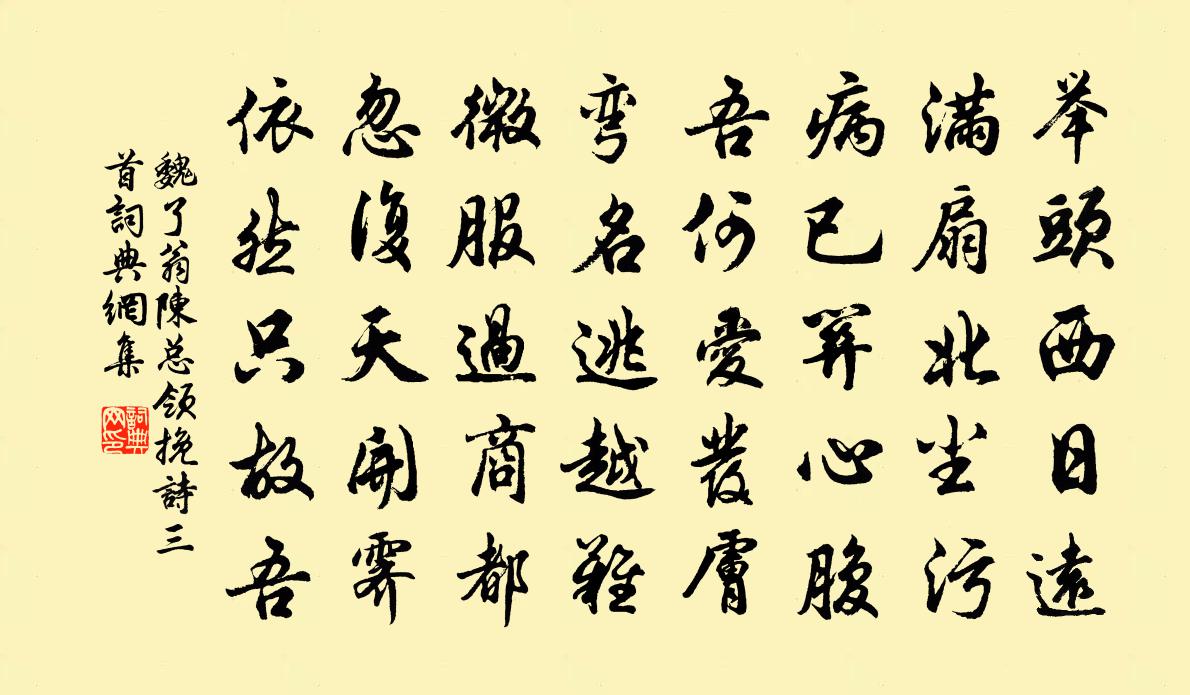 举頭西日遠
满扇北尘污
病已関心腹
吾何愛發膚
弯名逃越難
微服過商都
忽復天開霽
依然只故吾
魏了翁陳总領挽詩三
首詞典網集
詞典
网印